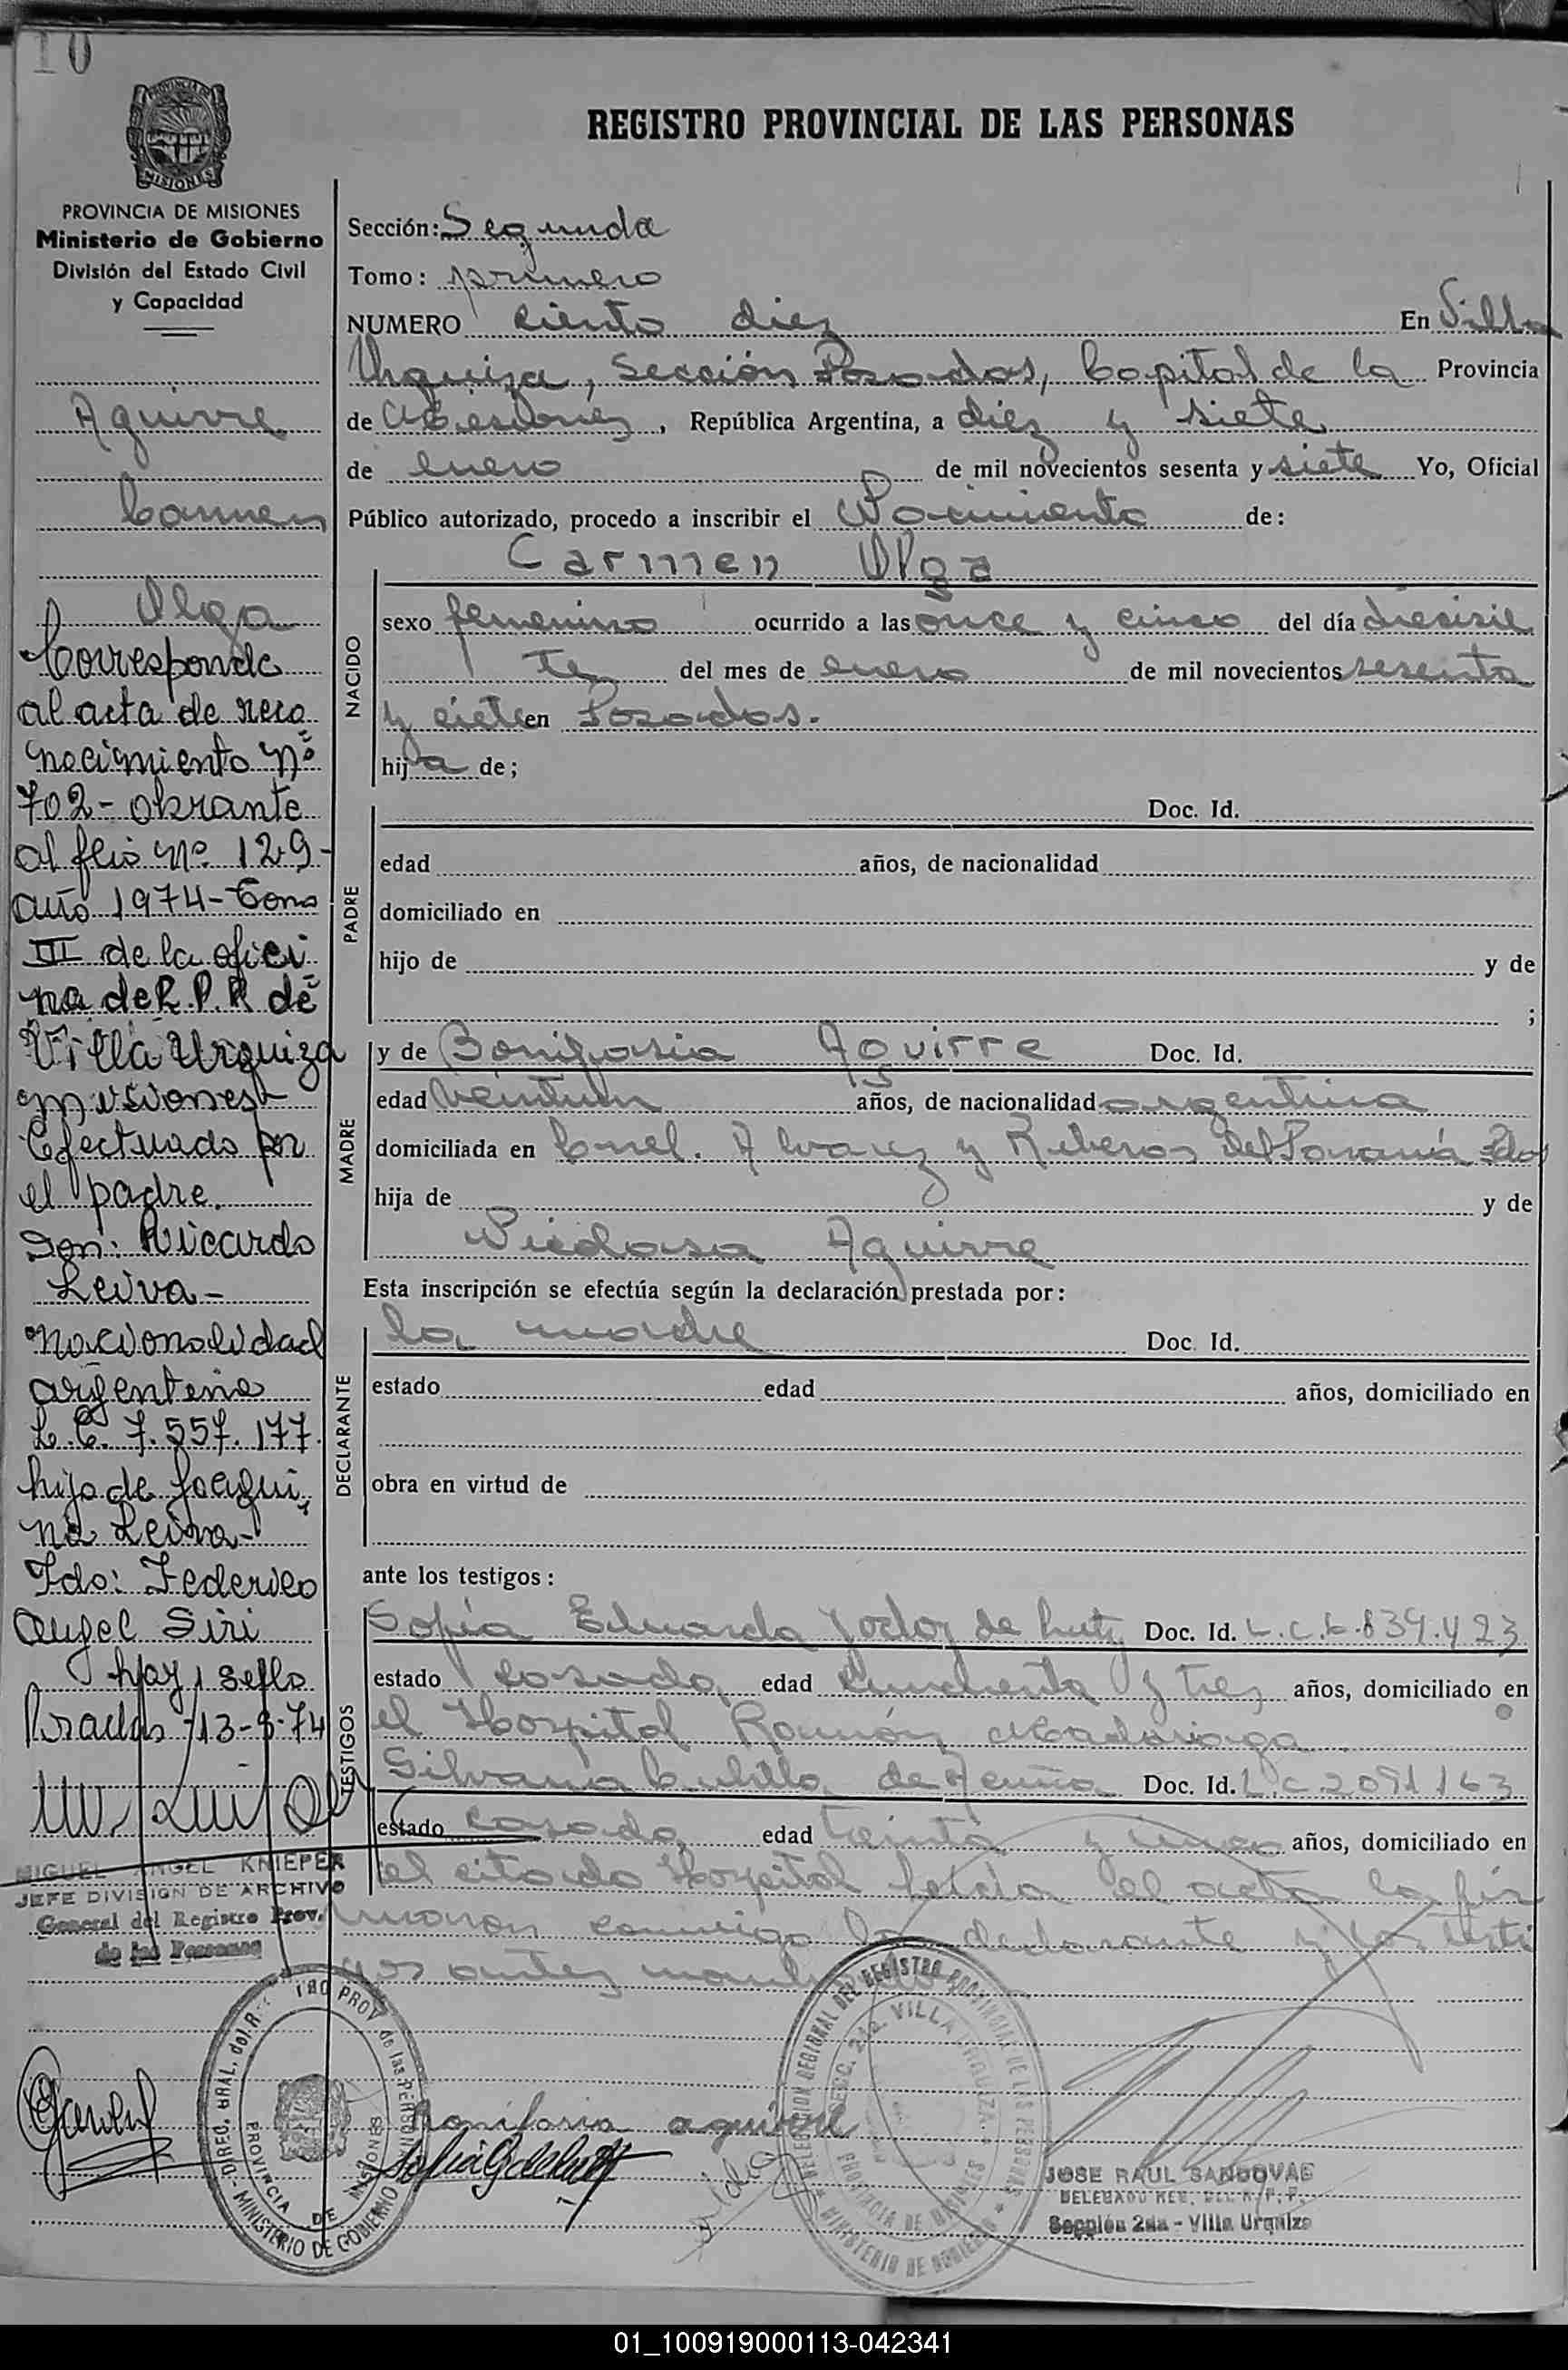 10
REGISTRO PROVINCIAL DE LAS PERSONAS
MISIONES
PROVINCIA DE MISIONES
Ministerio de Gobierno
División del Estado Civil
y Capacidad
Aguirre
Carmen
Olga
Corresponde
al acta de reco
nocimiento nº
702 - obrante
al flio nº 129 -
año 1974 - Tomo
III de la ofici
na de R.P.P. de
Villa Urquiza
misiones
Efectuado por
el padre.
Don: Riccardo
Leiva -
nacionalidad
argentina
L.E. 7.557.177.
hijo de Joaqui
na Leiva -
Fdo: Federico
Angel Siri
hay 1 sello
Posadas 13-9-74
MIGUEL ANGEL KNIEPER
JEFE DIVISION DE ARCHIVO
General del Registro Prov.
de las Personas
Sección: Segunda
Tomo: primero
NUMERO ciento diez En Villa
Urquiza, Sección Posadas, Capital de la Provincia
de Misiones, República Argentina, a diez y siete
de enero de mil novecientos sesenta y siete Yo, Oficial
Público autorizado, procedo a inscribir el Nacimiento de:
Carmen Olga
NACIDO
sexo femenino ocurrido a las once y cinco del día diecisie
te del mes de enero de mil novecientos sesenta
y siete en Posadas.
hija de;
PADRE
Doc. Id.
edad años, de nacionalidad
domiciliado en
hijo de y de
;
MADRE
y de Bonifasia Aguirre Doc. Id.
edad veintiun años, de nacionalidad argentina
domiciliada en Cnel. Alvarez y Riberas del Paraná Pdas
hija de y de
Piedosa Aguirre
Esta inscripción se efectúa según la declaración prestada por:
DECLARANTE
la madre Doc. Id.
estado edad años, domiciliado en
obra en virtud de
ante los testigos:
TESTIGOS
Sofia Eduarda Godoy de Lutz Doc. Id. L.C. 6.839.423
estado casada edad cincuenta y tres años, domiciliado en
el Hospital Ramón Madariaga
Silvana Cubilla de Acuña Doc. Id. L.C 2091163
estado casada edad treinta y cinco años, domiciliado en
el citado Hospital Leida el acta la fir
maron conmigo la declarante y los testi
gos antes
DIREC. GRAL. del PROV. de las PERSONAS
PROVINCIA DE MISIONES
MINISTERIO DE GOBIERNO
bonifasia aguirre
DELEGACION REGIONAL DEL REGISTRO PROVINCIAL DE LAS PERSONAS
SECC. 2da. VILLA URQUIZA
PROVINCIA DE MISIONES
MINISTERIO DE GOBIERNO
JOSE RAUL SANDOVAL
DELEGADO REG. DEL R.P.P.
Sección 2da - Villa Urquiza
01_100919000113-042341